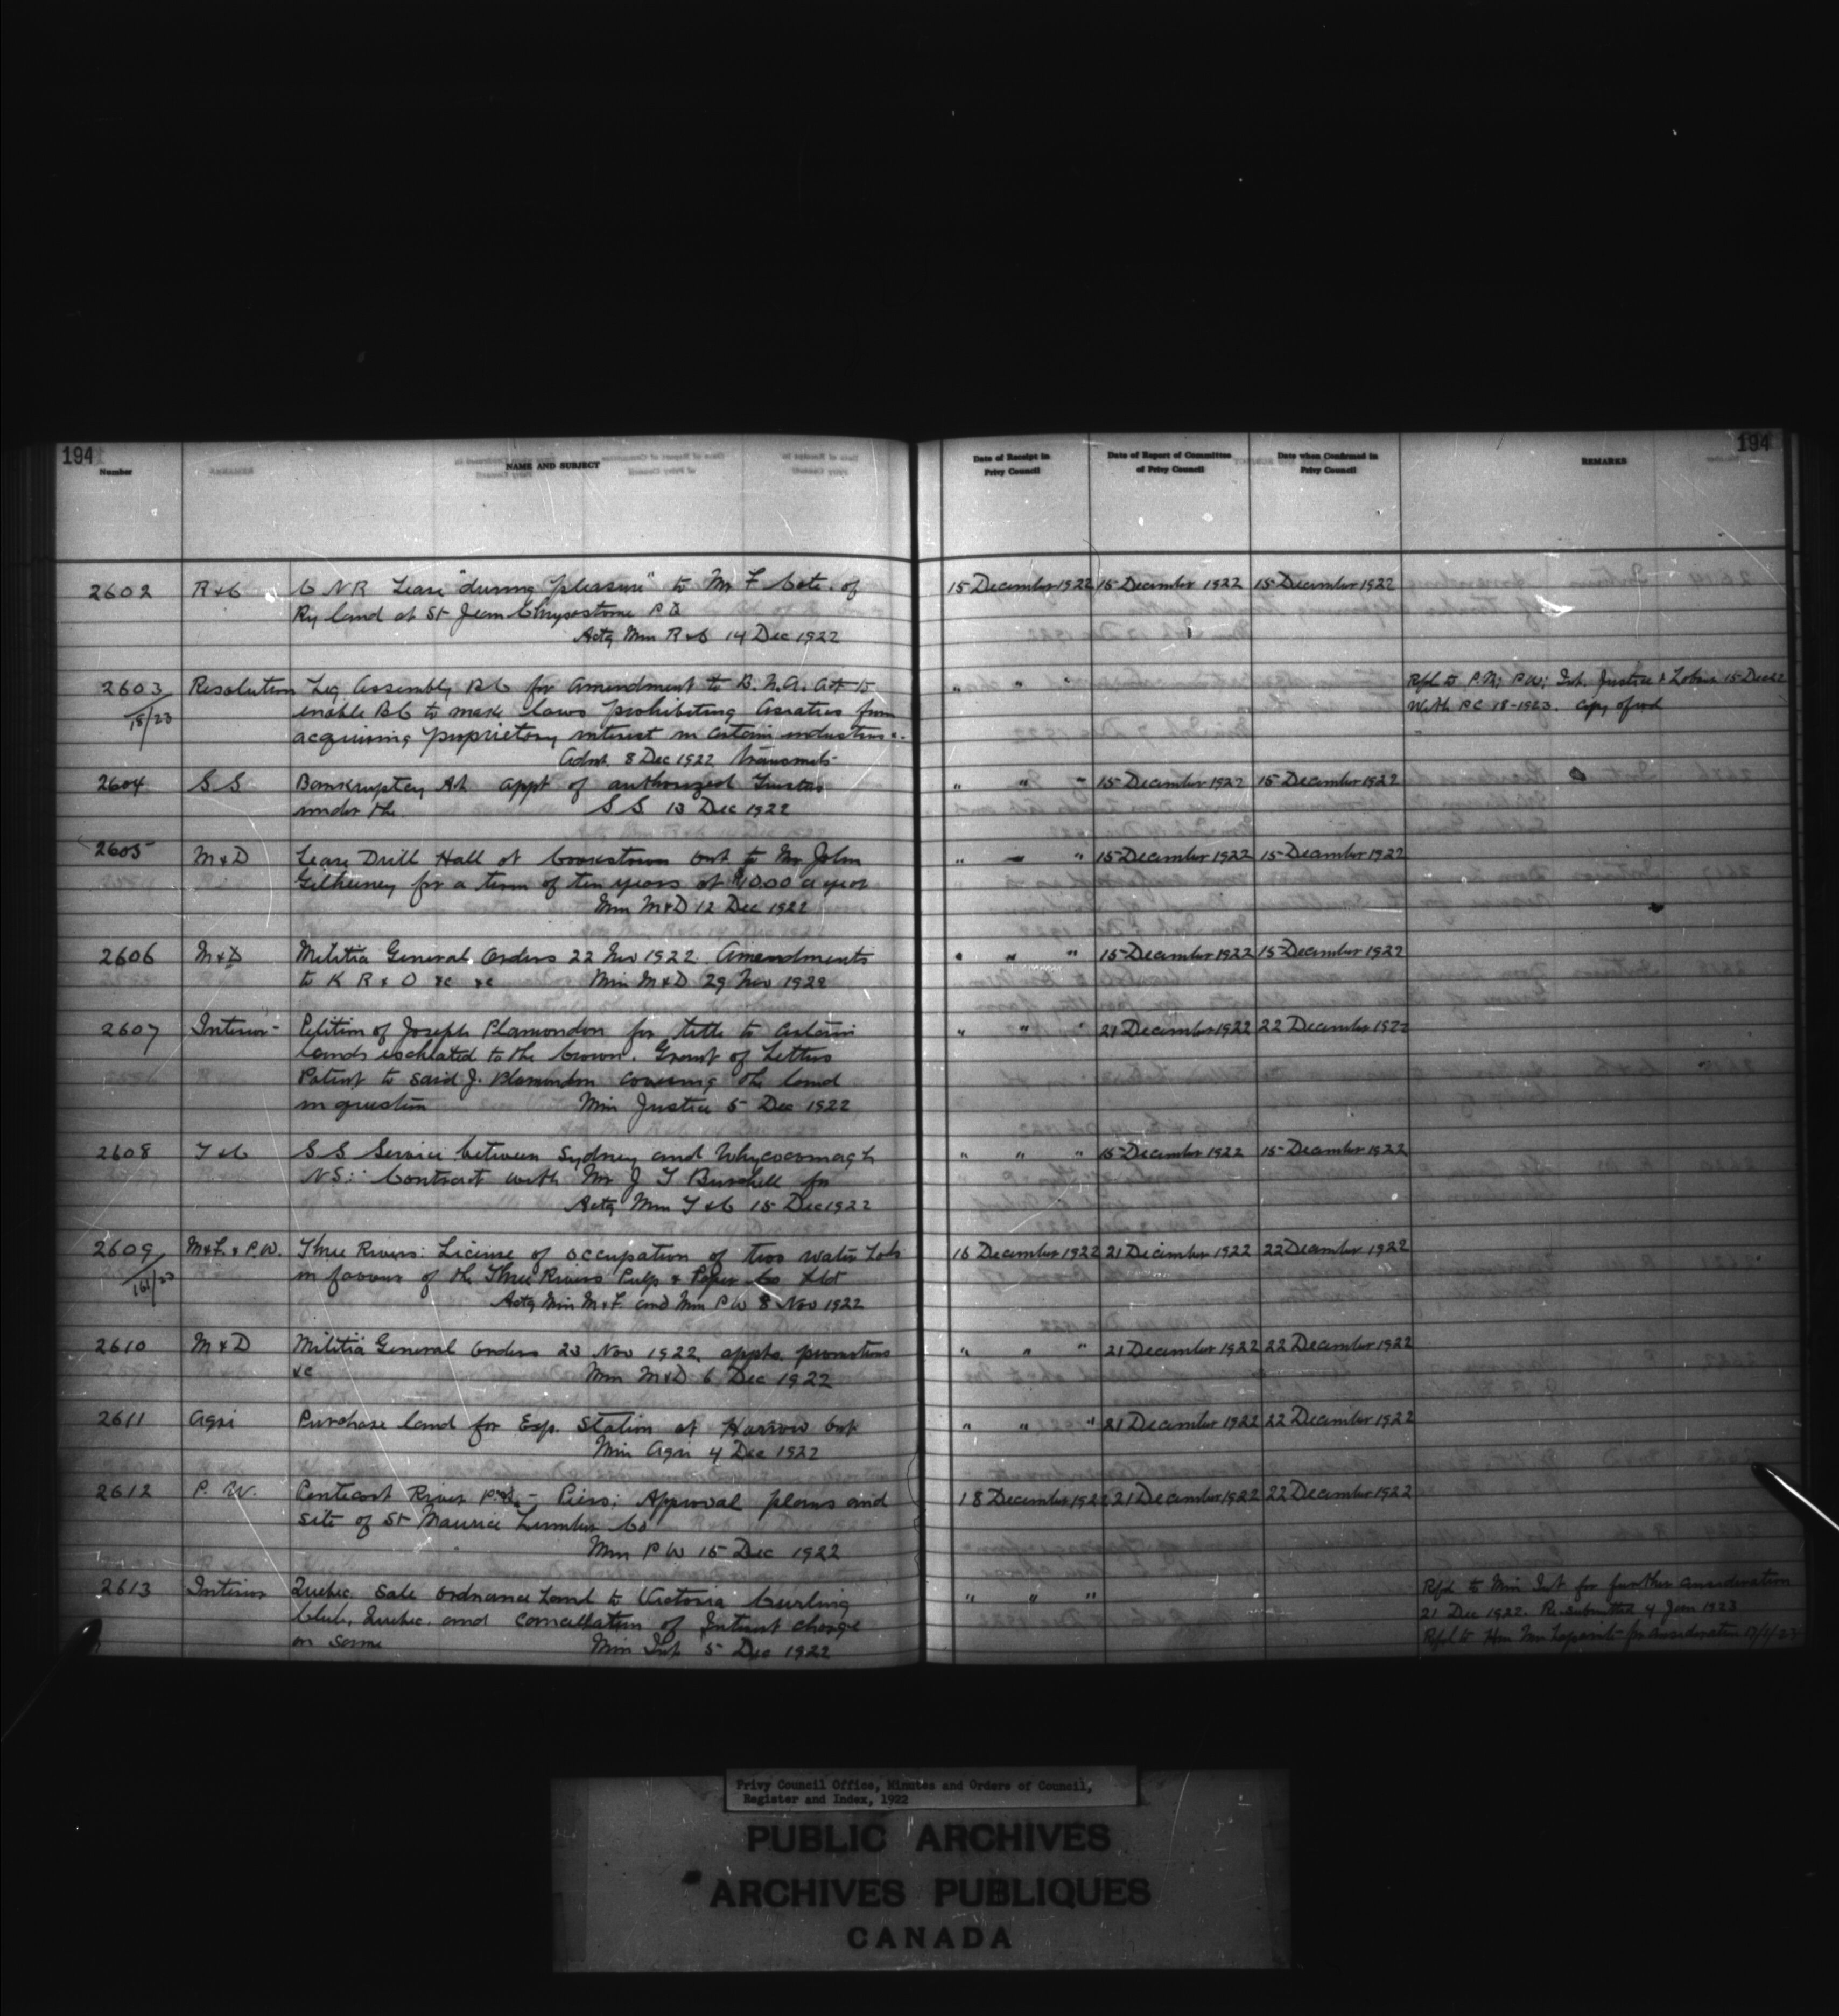 194
194
Number
NAME AND SUBJECT
Date of Receipt in Privy Council
Date of Report of Committee of Privy Council
Date when Confirmed in Privy Council
REMARKS
2602 R & C C N R Lease "during pleasure" to Mr F Cote. of 15 December 1922 15 December 1922 15 December 1922
Ry land at St Jean Chrysostome P Q
Actg Min R & C 14 Dec 1922
2603 Resolution Leg Assembly BC for amendment to B. N. A. Act to " " " Refd to P.M; P.W; Int. Justice & Labour 15 Dec 22
18/23 enable BC to make laws prohibiting Asiatics from With PC 18-1923. Copy of
acquiring proprietory interest in certain industries.
Admr 8 Dec 1922 transmits
2604 S S Bankruptcy Act appt of authorized Trustees " " " 15 December 1922 15 December 1922
under the S S 13 Dec 1922
2605 M & D Lease Drill Hall at Cookstown Ont to Mr John " " " 15 December 1922 15 December 1922
for a term of ten years at $10.00 a year
Min M & D 12 Dec 1922
2606 M & D Militia General Orders 22 Nov 1922 Amendments " " " 15 December 1922 15 December 1922
to K R & O &c &c Min M & D 29 Nov 1922
2607 Interior - Petition of Joseph Plamondon for title to certain " " " 21 December 1922 22 December 1922
lands escheated to the Crown. Grant of Letters
Patent to said J. Plamondon covering the land
in question Min Justice 5 Dec 1922
2608 T & C S S Service between Sydney and Whycocomagh " " " 15 December 1922 15 December 1922
NS: Contract with Mr J T Burchell for
Actg Min T & C 15 Dec 1922
2609 M&F. & P.W. Three Rivers: License of occupation of two water Lots 16 December 1922 21 December 1922 22 December 1922
in favour of the Three Rivers Pulp & Paper Co Ltd
Actg Min M & F. and Min P W 8 Nov 1922
2610 M & D Militia General Orders 23 Nov 1922, appts. promotions " " " 21 December 1922 22 December 1922
&c Min M & D 6 Dec 1922
2611 Agri Purchase land for Exp. Station at Harrow Ont " " " 21 December 1922 22 December 1922
Min Agri 4 Dec 1922
2612 P. W. Pentecost River P.Q. - Piers; Approval plans and 18 December 1922 21 December 1922 22 December 1922
site of St Maurice Lumber Co
Min P W 15 Dec 1922
2613 Interior Quebec. Sale Ordnance Land to Victoria Curling " " " Refd to Min Int for further consideration
Club, Quebec. and cancellation of Interest charge 21 Dec 1922. Re submitted 4 Jan 1923
on same Min Int. 5 Dec 1922 Refd to Hon Mr Lapointe for consideration
Privy Council Office, Minutes and Orders of Council,
Register and Index, 1922
PUBLIC ARCHIVES
ARCHIVES PUBLIQUES
CANADA